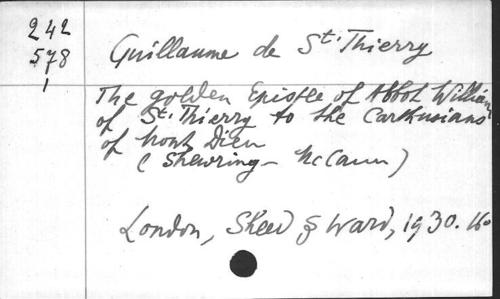 242
578
1
Guillaume de St. Thierry
The golden Epistle of Abbot William
of St. Thierry to the Carthusians
of Mont Dieu
( Shewring - McCann )
London, Sheed & Ward, 1930. 16o